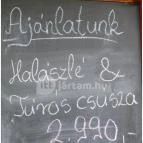 Ajánlatunk
Halászlé &
ittjártam.hu
Túrós csusza
2.990,-